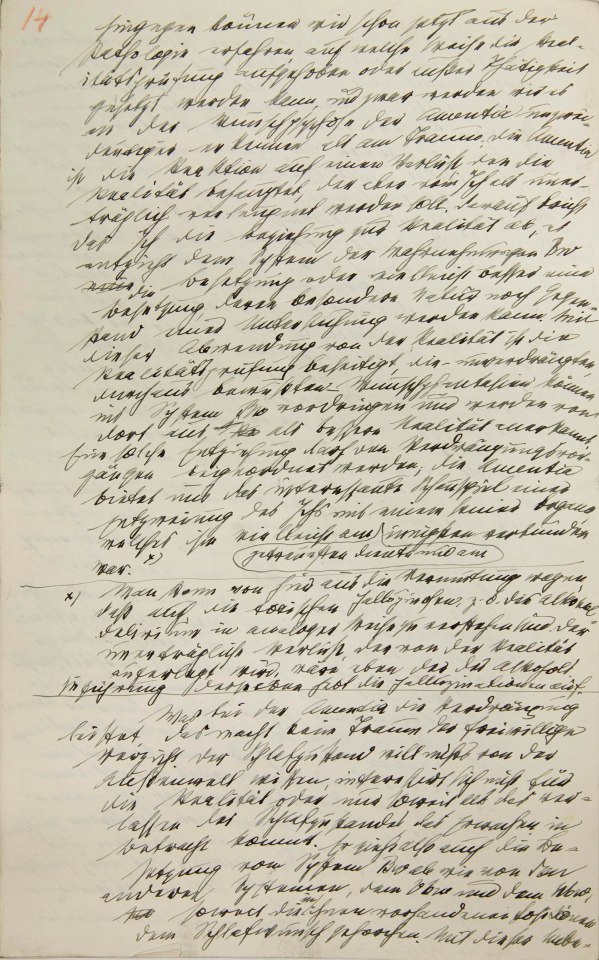 14
Hingegen können wir schon jetzt aus der
Pathologie erfahren auf welche Weise die Real-
itätsprüfung aufgehoben oder außer Thätigkeit
gesetzt werden kann, und zwar werden wir es
an der Wunschpsychose der Amentia unzwei-
deutiger erkennen als am Traum. die Amentia
ist die Reaktion auf einen Verlust, den die
Realität behauptet, der aber vom Ich als uner-
träglich verleugnet werden soll. Darauf bricht
das Ich die Beziehung zur Realität ab, es
entzieht dem System der Wahrnehmungen Bw
die Besetzung oder vielleicht besser eine
Besetzung deren besondere Natur noch Gegen-
stand einer Untersuchung werden kann. Mit
dieser Abwendung von der Realität ist die
Realitätsprüfung beseitigt, die unverdrängten
durchaus bewußten Wunschphantasien können
ins System vordringen und werden von
dort aus als bessere Realität anerkannt.
Eine solche Entziehung darf den Verdrängungsvor-
gängen beigeordnet werden; die Amentia
bietet uns das interessante Schauspiel einer
Entzweiung des Ichs mit einem seiner Organe
welches ihm vielleicht am innigsten verbunden
getreuesten diente und am
war. x)
x) Man kann von hier aus die Vermutung wagen,
daß auch die toxischen Halluzinosen, z. B. das Alkohol-
delirium in analoger Weise zu verstehen sind. Der
unerträgliche Verlust, der von der Realität
auferlegt wird, wäre eben der des Alkohols
Zuführung desselben hebt die Halluzinationen auf.
Was bei der Amentia die Verdrängung
leistet, das macht beim Traum der freiwillige
Verzicht. der Schlafzustand will nichts von der
Aussenwelt wissen, interessirt sich nicht für
die Realität oder nur soweit als das Ver-
lassen des Schlafzustandes das Erwachen in
Betracht kommt. Er zieht also auch die Be-
setzung vom System Bw ab wie von den
anderen Systemen, dem Vbw und dem Ubw,
soweit die in ihnen vorhandenen Positionen
dem Schlafwunsch gehorchen. Mit dieser Unbe-